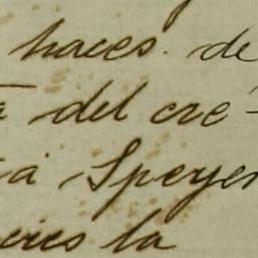 haces. de
del cre-
Speyer
la